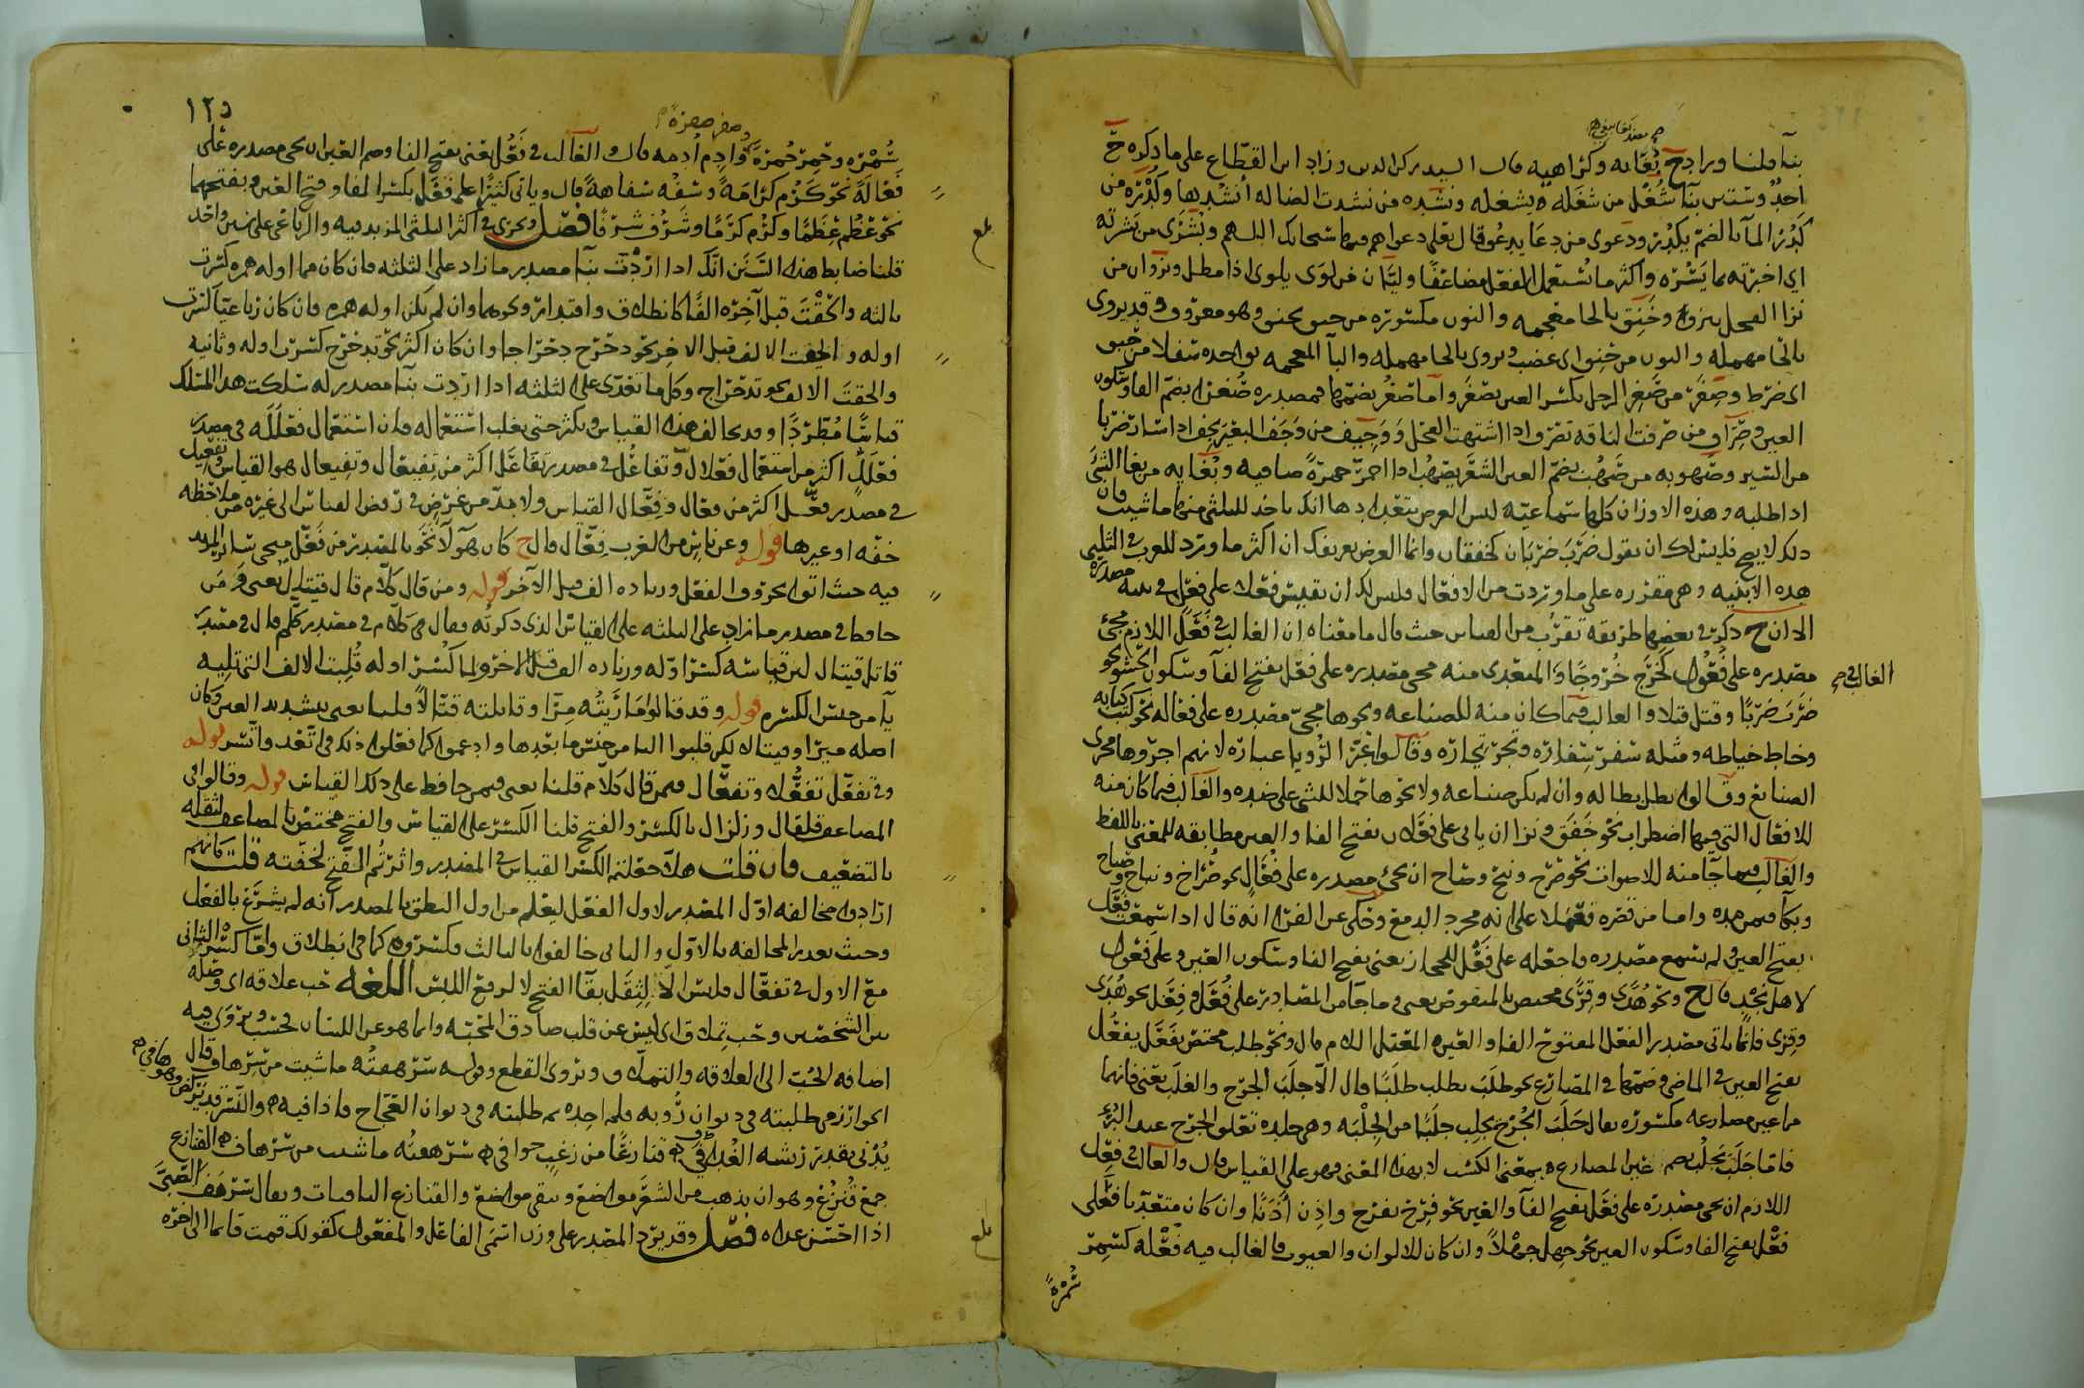 بنا قلنا وزاد ح بُغَايه وكراهيه قال السيد ركن الدين وزاد ابن القطاع على ما ذكره ح
احدٌ وستين بنآ شُغْل من شغله يشغله ونشده من نشدت الضاله أنشدها وكُدْرَه من
كَدُرَ المآ بالضم يكدُر ودعوى من دعا يدعُو قال تعلى دعواهم فيها سبحانك اللهم وبُشْرَى من بَشرته
اي اخبرته بما يَسُرّه واكثر ما يُستعمل الفعل مضاعفًا وليَّان من لوَى يلوى اذا مطل ونزوان من
نزا الفحل ينزوا وخَنِق بالخا معجمه والنون مكسوره من خنق يخنق وهو معروف وقد يروى
بالحا مهمله والنون من حَنِق اى غضب ويروى بالحا مهمله والبآ المعجمه بواحده سفلا من حبق
اى ضرط وصِغَر من صَغر الرجل بكسر العين يصغَر واما صغُر يصغُر بضمهما فمصدره صُغرا بضم الفا وسكون
العين وصِرَاف من صرفت الناقه تصرف اذا اشتهت الفحل وَوَجِيف من وَجَف البعير يجف اذا سار ضربا
من السير وصُهوبه من صَهُب بضم العين الشعَر يصهُب اذا احمرّ حمرةً صافيه وبُغَايه من بغا الشئَ
اذا طلبه وهذه الاوزان كلها سماعيّه ليس الغرض بتعدادها انك تاخذ للثلثى منها ما شيت فان
ذلك لا يصح فليس لك ان تقول ضرَبَ ضرَبَان كخفقان وانما الغرض تعريفك ان اكثر ما ورد للعرب فى الثلثى
هذه الابنيه وهى مقرره على ما وردت من الافعال فليس لك ان تقيس فعلا على فعل فى بنيه مصدره
الا ان ح ذكر فى بعضها طريقه تقرُب من القياس حيث قال ما معناه ان الغالب فى فَعَل اللازم مجئ
مصدره على فُعُول كخرج خُرُوجًا والمتعدى منه مجى مصدره على فعْل بفتح الفآ وسكون الحشو نحو
ضرَبَ ضربًا وقتل قتلا والغالب فيما كان منه للصناعه ونحوها مجئ مصدره على فِعاله نحو كتب كتابه
وخاط خياطه ومثله سفر سِفاره وتجر تجاره وقالوا عبَر الرُّويا عِباره لانهم اجروها مجرى
الصنايع وقالوا بطل بطاله وان لم يكن صناعه ولا نحوها حملا للشى على ضده والغالب فيما كان منه
للافعال التى فيها اضطراب نحو خَفَق ونزا ان ياتى على فَعَلان بفتح الفا والعين مطابقه للمعنى باللفظ
والغالب فيما جآ منه للاصوات نحو صَرخ ونبح وصاح ان يجئ مصدره على فُعَال نحو صُرَاخ ونباح وصياح
وبكآ فيمن مده واما من قصره فحملا على انه مجرد الدمع وحُكى عن الفرا انه قال اذا سمعت فعَل
بفتح العين ولم تسمع مصدره فاجعله على فَعْل للحجاز يعنى بفتح الفا وسكون العين وعلى فعول
لاهل نجد قال ح ونحو هُدًى وقِرًى مختص بالمنقوص يعنى وما جآ من المصادر على فُعَل وفِعَل نحو هُدًى
وقِرى فانما ياتى مصدر الفعل المفتوح الفا والعين المعتل اللام قال ونحو طلب مختص بفَعَل يفعُل
بفتح العين فى الماضى وضمها فى المضارع نحو طلَبَ يطلب طلَبًا قال الا جلَبَ الجُرْح والغلَب يعنى فانهما
ما عين مضارعه مكسوره يقال جَلَبَ الجُرْح يجلِب جلَبًا من الجُلْبَه وهى جلده تعلو الجرح عند البُرْءِ
فامّا جَلَبَ يَجلُب بضم عين المضارع بمعنى الكسب لا بهذا المعنى فهو على القياس قال والغالب فى فعِل
اللازم ان يجى مصدره على فَعَل بفتح الفآ والعين نحو فرِح يفرَح واذِن أَذَنًا وان كان متعدّيا فعلى
فَعْل بفتح الفا وسكون العين نحو جهل جهْلاً وان كان للالوان والعيوب فالغالب فيه فُعْلَه كسَمِر
سُمْرةً
الغالب فى
١٢٥
سُمْرَه وحَمِرَ حُمرةً وادِم أُدمه قال والغالب فى فَعُل يعنى بفتح الفا وضم العين ان يجى مصدره على
فَعالَةً نحو كَرُم كرَامَةً وسَفُه سفاهةً قال وياتى كثيرًا على فِعَل بكسر الفا وفتح العين وبفتحهما
نحو عَظُم عِظَمًا وكرُم كَرَمًا وشَرُف شرفًا فصل ويجرى فى اكثر الثلثى المزيد فيه والرباعى على سَنن واحد
قلنا ضابط هذا السَّنَن انّك اذا اردْتَ بنا مصدر ما زاد على الثلثه فان كان مما اوله همزه كسرت
ثالثه والحَقْتَ قبل آخره الفًا كانطلاق واقتدار ونحوهما وان لم يكن اوله همزه فان كان رباعيًا كسرت
اوله والحقت الالف قبل الاخر نحو دحرج دِحْراجا وان كان اكثر نحو تدحرج كسرت اوله وثانيه
والحقتَ الالف نحو تدحراج وكل ما تعدّى على الثلثه اذا اردت بنا مصدر له سلكت هذا المسلك
قياسًا مُطّردًا وقد يخالف هذا القياس ويكثر حتى يغلب استعماله فان استعمال فعْلَلَه فى مصدر
فعلَلَ اكثر من استعمال فِعْلال وتفاعُل فى مصدر تفاعَل اكثر من تِفيعال وتفيعال هو القياس وتفعيل
فى مصدر فعَّل اكثر من فعال وفِعّال القياس ولا بد من غرض فى رفض القياس الى غيره من ملاحظه
خفه او غيرها قوله وعن ناس من العرب فِعّال قال ح كان هؤلآ نَحَوْا بالمصدر من فَعَّل منحى ساير المزيد
فيه حيث اتوا بحروف الفعل وزياده الف قبل الآخر قوله ومن قال كلّام قال قيتال يعنى ومن
حافظ فى مصدر ما زاد على الثلثه على القياس الذى ذكرته فقال كِلّام فى مصدر كلّم قال فى مصدر
قاتل قيتال لان قياسه كسر اوله وزياده الف قبل الاخر ولما كُسر اوله قُلِبت الالف التى تليه
يآ من جنس الكسره قوله وقد قالوا مَارَيْتُه مِرّا وقاتلته قتّالاً قلنا يعنى بتشديد العين وكان
اصله ميرا وقيتالا لكن قلبوا اليا من جنس ما بعدها وادغموا كما فعلوا ذلك فى اتّعد واتّسر قوله
وفى تفعّل تفعُّل وتفعّال فيمن قال كلّام قلنا يعنى فيمن حافظ على ذلك القياس قوله وقالوا فى
المضاعف قلقال وزلزال بالكسر والفتح قلنا الكسر على القياس والفتح مختص بالمضاعف لثقله
بالتضعيف فان قلت هلّا جعلتم الكسر القياس فى المصدر واثرتم الفتح لخفته قلت كانهم
ارادوا مخالفه اوّل المصدر لاول الفعل ليعلم من اول النطق بالمصدر أنه لم يشرع بالفعل
وحيث تعذر المخالفه بالاوّل والثانى خالفوا بالثالث فكسروه كما فى انطلاق وامّا كسره الثانى
مع الاول فى تفعّال فليس الا لِثِقَل بقآ الفتح لا لدفع اللبس اللغه حب علاقه اى وصله
بين الشخصين وحب تملاق اى ليس عن قلب صادق المحبّه وانما هو عن اللسان فحسب ويُروَى فيه
اضافه الحُبّ الى العلاقه والتملاق ويروى القطع وقوله سَرْهفتُه ما شيت من سَرْهاف قال
الخوارزمى طلبته فى ديوان رؤبه فلم اجده ثم طلبته فى ديوان العجّاج فاذا فيه والنسر قد يركض وهو هافى
يُدْنى بعد ريشه الغُدافى قنازعًا من زغَب خوافى سَرْهفتُه ما شيت من سَرْهاف القنازع
جمع قُنْزُع وهو ان يذهب من الشعَر مواضع ويبقى مواضع والقنازع الباقيات ويقال سَرْهفَ الصبىَّ
اذا احسن غداه فصل وقد يرد المصدر على وزن اسمى الفاعل والمفعول كقولك قمت قايما الى اخره
بلغ
بلغ